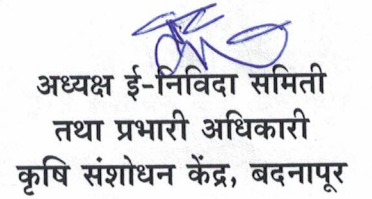 अध्यक्ष ई-निविदा समिती
तथा प्रभारी अधिकारी
कृषि संशोधन केंद्र, बदनापूर